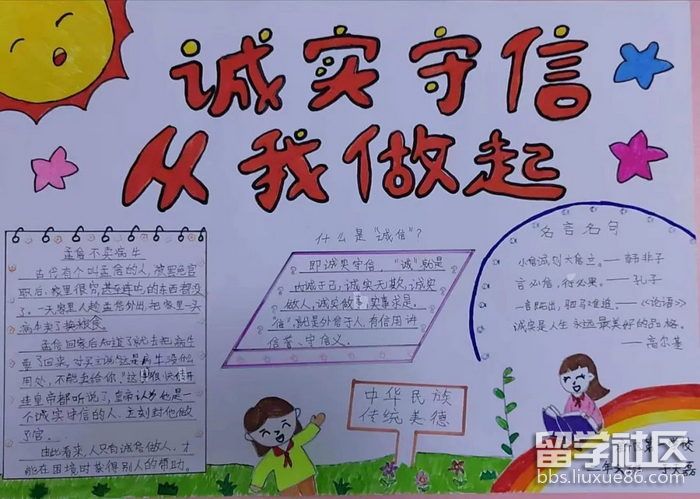 诚实守信
从我做起
孟信不卖病牛
古代有个叫孟信的人,被罢免官
职后,家里很穷甚至连吃的东西都没
了。一天家里人趁孟信外出,把家里一头
病牛卖了换粮食。
孟信回家后知道了就去把病牛
要了回来,对买主说“这是病牛没什么
用处,不能卖给你。”这事很快传开
连皇帝都听说了,皇帝认为他是一
个诚实守信的人,立刻封他做
了官。
由此看来,人只有诚信做人,才
能在困境时获得别人的帮助。
什么是“诚信”?
即诚实守信,“诚”就是
内诚于己,诚实无欺,诚实
做人,诚实做事,实事求是。
“信”就是外信于人,有信用讲
信誉、守信义。
中华民族
传统美德
名言名句
小信诚则大信立。——韩非子
言必信,行必果。——孔子
一言既出,驷马难追。——《论语》
诚实是人生永远最美好的品格。
——高尔基
留学社区
bbs.liuxue86.com